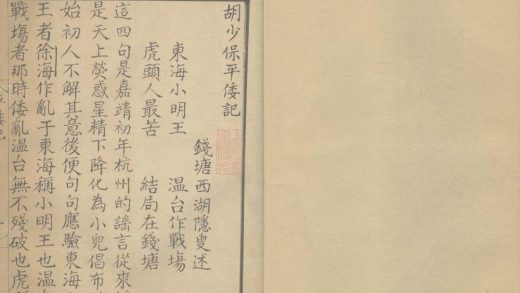 胡少保平倭記
錢塘西湖隱叟述
東海小明王　温台作戰塲
虎頭人最苦　結局在錢塘
這四句是嘉靖初年杭州的謠言從來
是天上熒惑星精下降化為小兒倡布
始初人不解其意後便句句應驗東海
王者徐海作亂于東海稱小明王也温
戰塲者那時倭亂温台無不殘破也虎